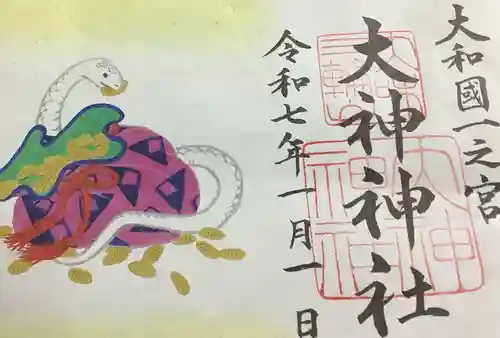 大和國一之宮
大神神社
令和七年一月一日